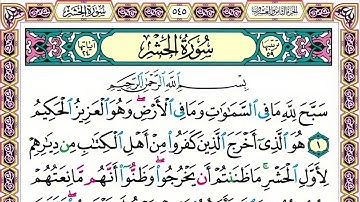 سُورَةُ الحَشْرِ ٥٤٥ الجزء الثامن والعشرون
سُورَةُ الْحَشْرِ
بِسْمِ اللَّهِ الرَّحْمَٰنِ الرَّحِيمِ
سَبَّحَ لِلَّهِ مَا فِي السَّمَاوَاتِ وَمَا فِي الْأَرْضِ ۖ وَهُوَ الْعَزِيزُ الْحَكِيمُ
١ هُوَ الَّذِي أَخْرَجَ الَّذِينَ كَفَرُوا مِنْ أَهْلِ الْكِتَابِ مِن دِيَارِهِمْ
لِأَوَّلِ الْحَشْرِ ۚ مَا ظَنَنتُمْ أَن يَخْرُجُوا ۖ وَظَنُّوا أَنَّهُم مَّانِعَتُهُمْ